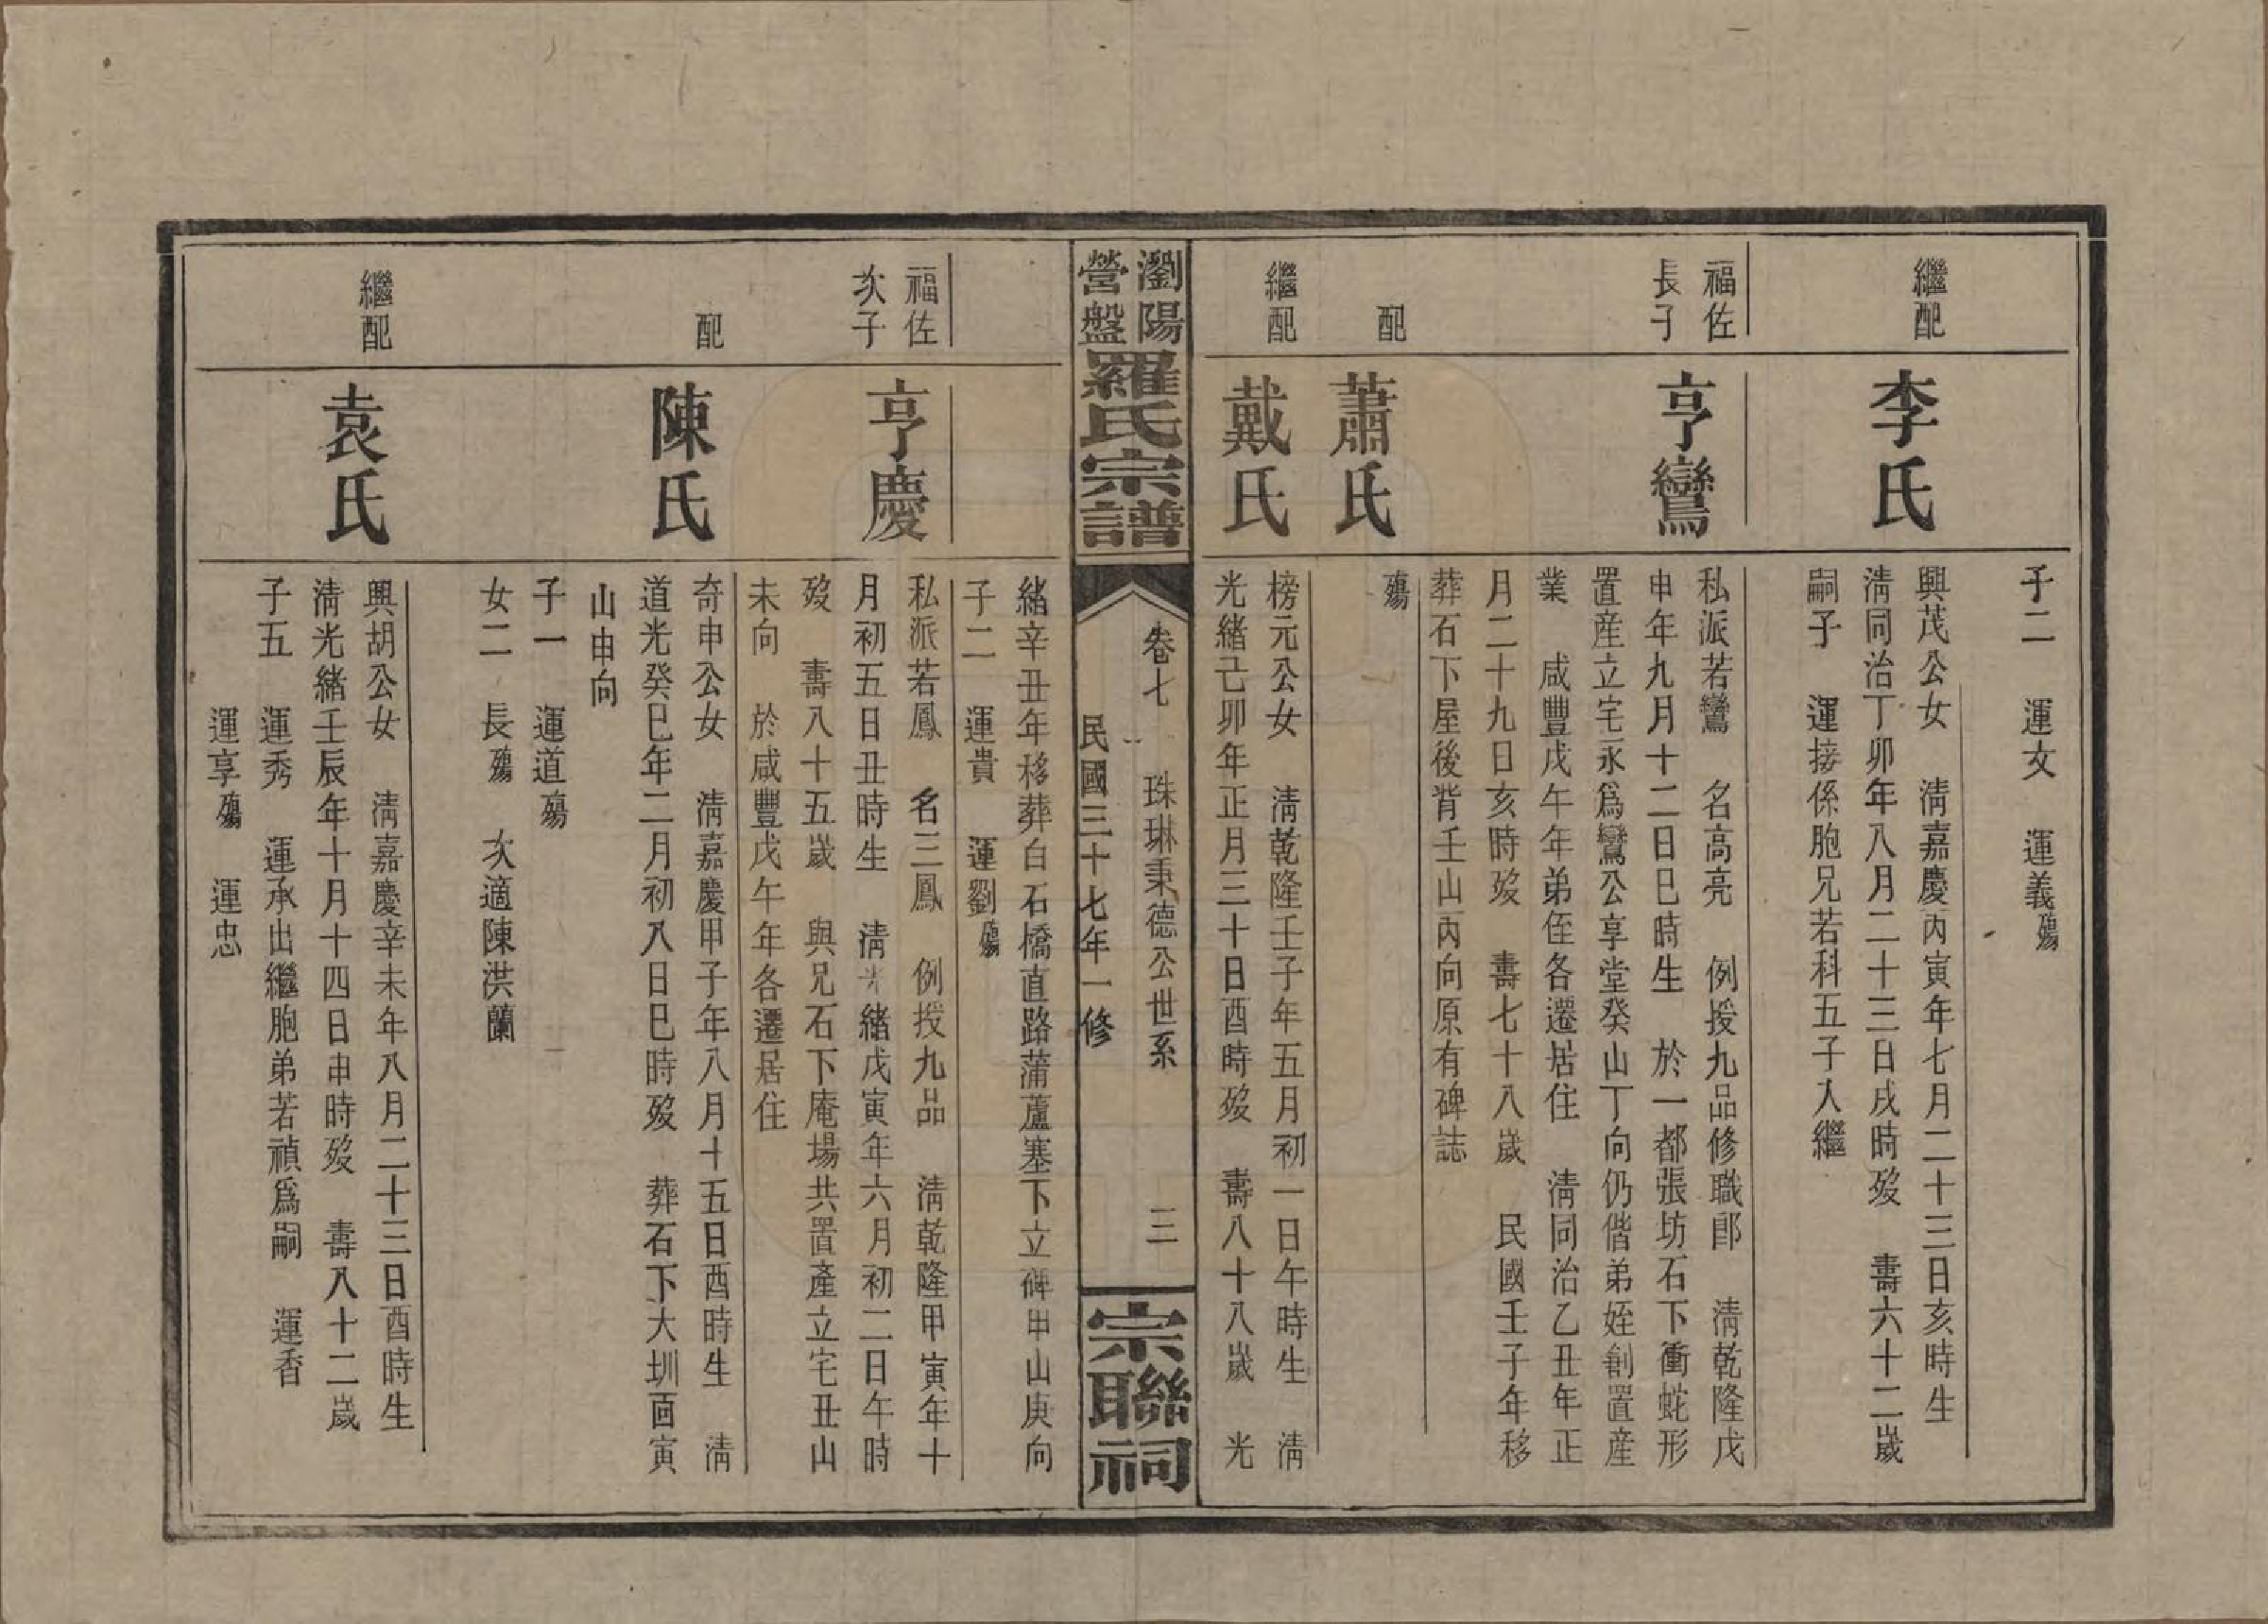 子二　運文　運義殤
繼配
李氏
興茂公女　淸嘉慶丙寅年七月二十三日亥時生
淸同治丁卯年八月二十三日戌時歿　壽六十二歲
嗣子　運接係胞兄若科五子入繼
福佐
長子
亨鸞
私派若鸞　名高亮　例授九品修職郎　淸乾隆戊
申年九月十二日巳時生　於一都張坊石下衝蛇形
置産立宅永爲鸞公享堂癸山丁向仍偕弟姪創置産
業　咸豐戊午年弟侄各遷居住　淸同治乙丑年正
月二十九日亥時歿　壽七十八歲　民國壬子年移
葬石下屋後背壬山丙向原有碑誌
配
蕭氏
殤
繼配
戴氏
榜元公女　淸乾隆壬子年五月初一日午時生　淸
光緒己卯年正月三十日酉時歿　壽八十八歲　光
瀏陽
營盤
羅氏宗譜
卷七　珠琳秉德公世系　三
民國三十七年一修
宗聯祠
緒辛丑年移葬白石橋直路蒲蘆塞下立碑甲山庚向
子二　運貴　運劉殤
福佐
次子
亨慶
私派若鳳　名三鳳　例授九品　淸乾隆甲寅年十
月初五日丑時生　淸光緒戊寅年六月初二日午時
歿　壽八十五歲　與兄石下庵場共置產立宅丑山
未向　於咸豐戊午年各遷居住
配
陳氏
奇申公女　淸嘉慶甲子年八月十五日酉時生　淸
道光癸巳年二月初八日巳時歿　葬石下大圳面寅
山申向
子一　運道殤
女二　長殤　次適陳洪蘭
繼配
袁氏
興胡公女　淸嘉慶辛未年八月二十三日酉時生
淸光緒壬辰年十月十四日申時歿　壽八十二歲
子五　運秀　運承出繼胞弟若禎爲嗣　運香
運享殤　運忠